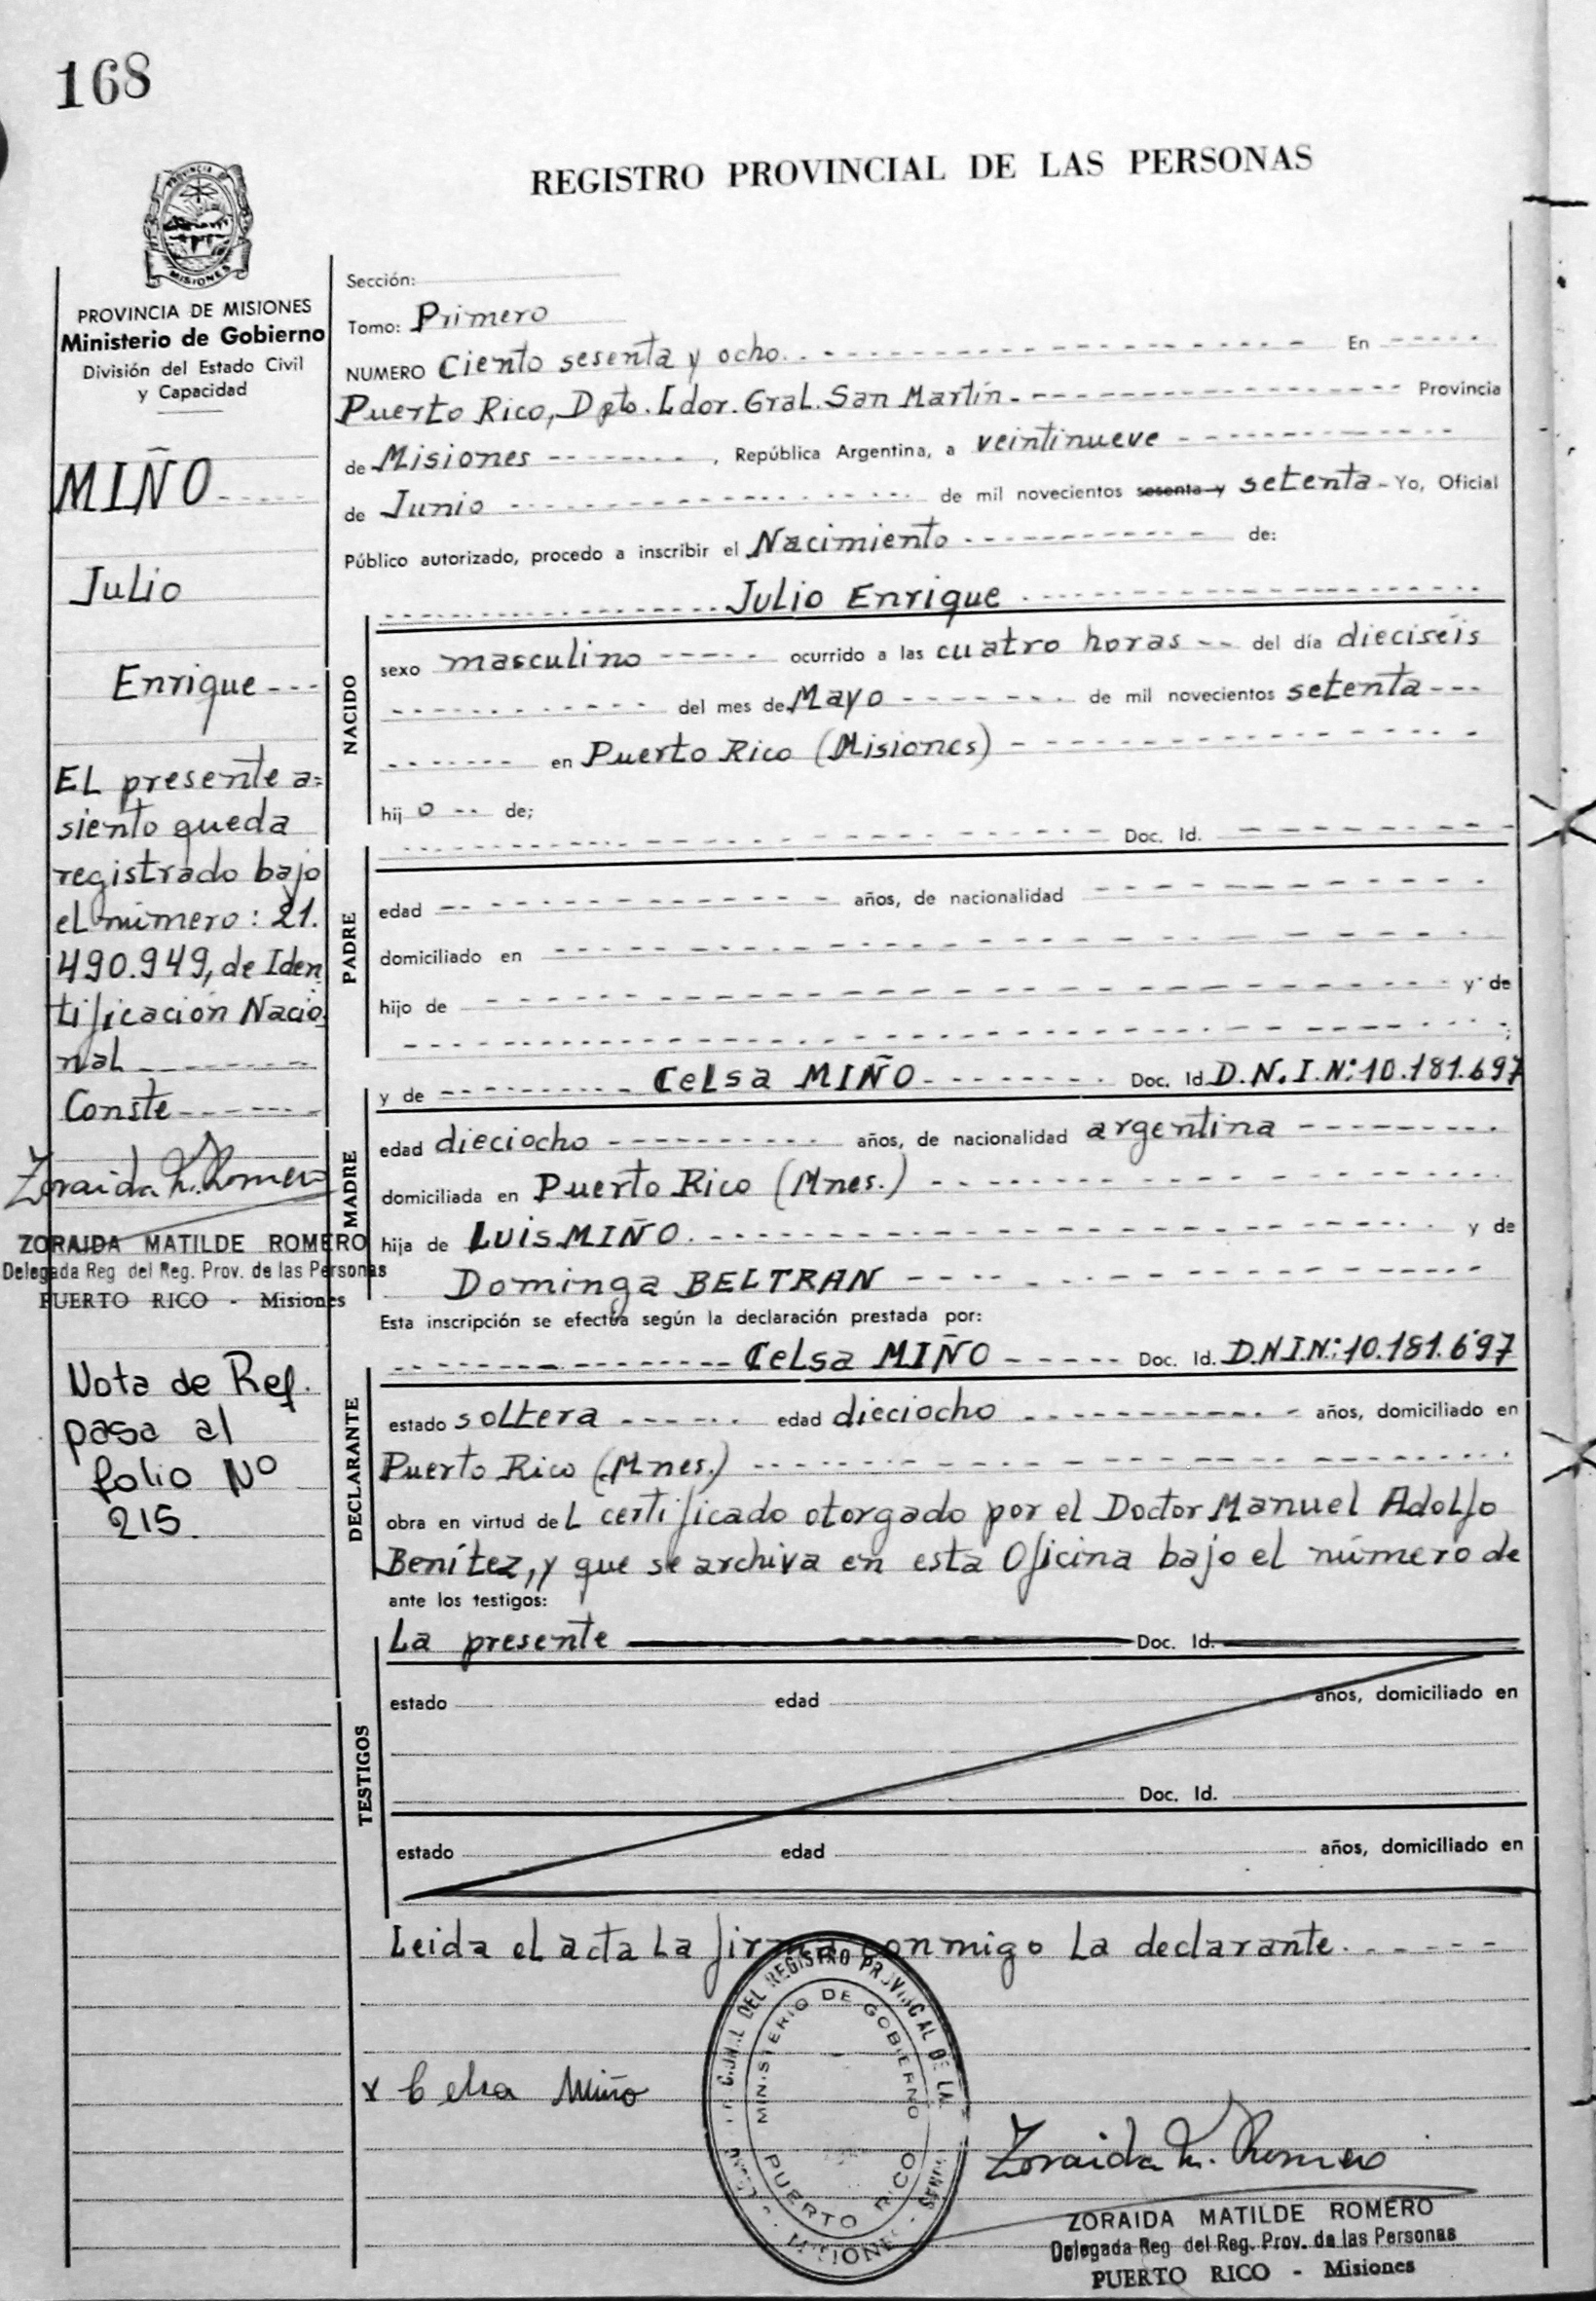 168
REGISTRO PROVINCIAL DE LAS PERSONAS
PROVINCIA DE MISIONES
Ministerio de Gobierno
División del Estado Civil
y Capacidad
MIÑO
Julio
Enrique
El presente a=
siento queda
registrado bajo
el número: 21.
490.949, de Iden
tificación Nacio
nal
Conste
Zoraida M. Romero
ZORAIDA MATILDE ROMERO
Delegada Reg del Reg. Prov. de las Personas
PUERTO RICO - Misiones
Nota de Ref.
pasa al
folio Nº
215.
Sección:
Tomo: Primero
NUMERO Ciento sesenta y ocho. En
Puerto Rico, Dpto. Ldor. Gral. San Martín. Provincia
de Misiones , República Argentina, a veintinueve
de Junio de mil novecientos sesenta y setenta - Yo, Oficial
Público autorizado, procedo a inscribir el Nacimiento de:
Julio Enrique
NACIDO
sexo masculino ocurrido a las cuatro horas del día dieciseis
del mes de Mayo de mil novecientos setenta
en Puerto Rico (Misiones)
hij o de;
Doc. Id.
PADRE
edad años, de nacionalidad
domiciliado en
hijo de y de
;
y de Celsa MIÑO Doc. Id. D.N.I.N: 10.181.697
MADRE
edad dieciocho años, de nacionalidad argentina
domiciliada en Puerto Rico (Mnes.)
hija de Luis MIÑO. y de
Dominga BELTRAN
Esta inscripción se efectúa según la declaración prestada por:
Celsa MIÑO Doc. Id. D.N.I.N: 10.181.697
DECLARANTE
estado soltera edad dieciocho años, domiciliado en
Puerto Rico (Mnes.)
obra en virtud de L certificado otorgado por el Doctor Manuel Adolfo
Benítez, y que se archiva en esta Oficina bajo el número de
ante los testigos:
La presente Doc. Id.
TESTIGOS
estado edad años, domiciliado en
Doc. Id.
estado edad años, domiciliado en
Leida el acta la firma conmigo la declarante.
x Celsa Miño
DEL REGISTRO PROVINCIAL DE LAS
MINISTERIO DE GOBIERNO
PUERTO RICO
MISIONES
Zoraida M. Romero
ZORAIDA MATILDE ROMERO
Delegada Reg del Reg. Prov. de las Personas
PUERTO RICO - Misiones